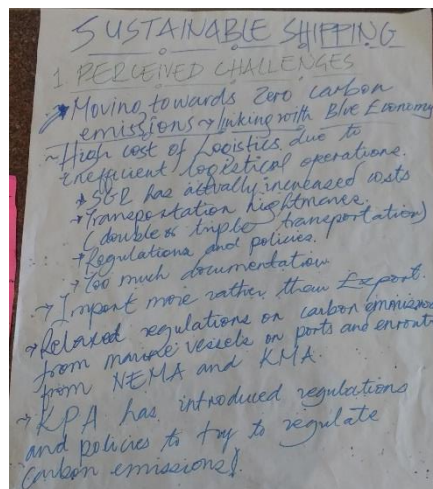 SUSTAINABLE SHIPPING
1 PERCEIVED CHALLENGES
→ Moving towards Zero carbon
emissions → linking with Blue Economy
~ High cost of Logistics due to
inefficient logistical operations.
→ SGR has actually increased costs
→ Transportation nightmares.
(double or triple transportation)
→ Regulations and policies.
→ Too much documentation
→ Import more rather than Export.
→ Relaxed regulations on carbon emmissions
from marine vessels on ports and enroute
from NEMA and KMA.
→ KPA has introduced regulations
and policies to try to regulate
carbon emissions!